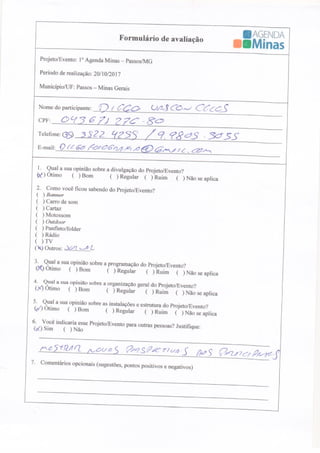 Formulário de avaliação
AGENDA
Minas
Projeto/Evento: 1º Agenda Minas – Passos/MG
Período de realização: 20/10/2017
Município/UF: Passos – Minas Gerais
Nome do participante:
CPF:
Telefone:
E-mail:
1. Qual a sua opinião sobre a divulgação do Projeto/Evento?
(X) Ótimo ( ) Bom ( ) Regular ( ) Ruim ( ) Não se aplica
2. Como você ficou sabendo do Projeto/Evento?
( ) Banner
( ) Carro de som
( ) Cartaz
( ) Motossom
( ) Outdoor
( ) Panfleto/folder
( ) Rádio
( ) TV
(X) Outros:
3. Qual a sua opinião sobre a programação do Projeto/Evento?
(X) Ótimo ( ) Bom ( ) Regular ( ) Ruim ( ) Não se aplica
4. Qual a sua opinião sobre a organização geral do Projeto/Evento?
(X) Ótimo ( ) Bom ( ) Regular ( ) Ruim ( ) Não se aplica
5. Qual a sua opinião sobre as instalações e estrutura do Projeto/Evento?
(X) Ótimo ( ) Bom ( ) Regular ( ) Ruim ( ) Não se aplica
6. Você indicaria esse Projeto/Evento para outras pessoas? Justifique:
(X) Sim ( ) Não
MOSTRAR NOVAS PERSPECTIVAS AOS PARTICIPANTES
7. Comentários opcionais (sugestões, pontos positivos e negativos)